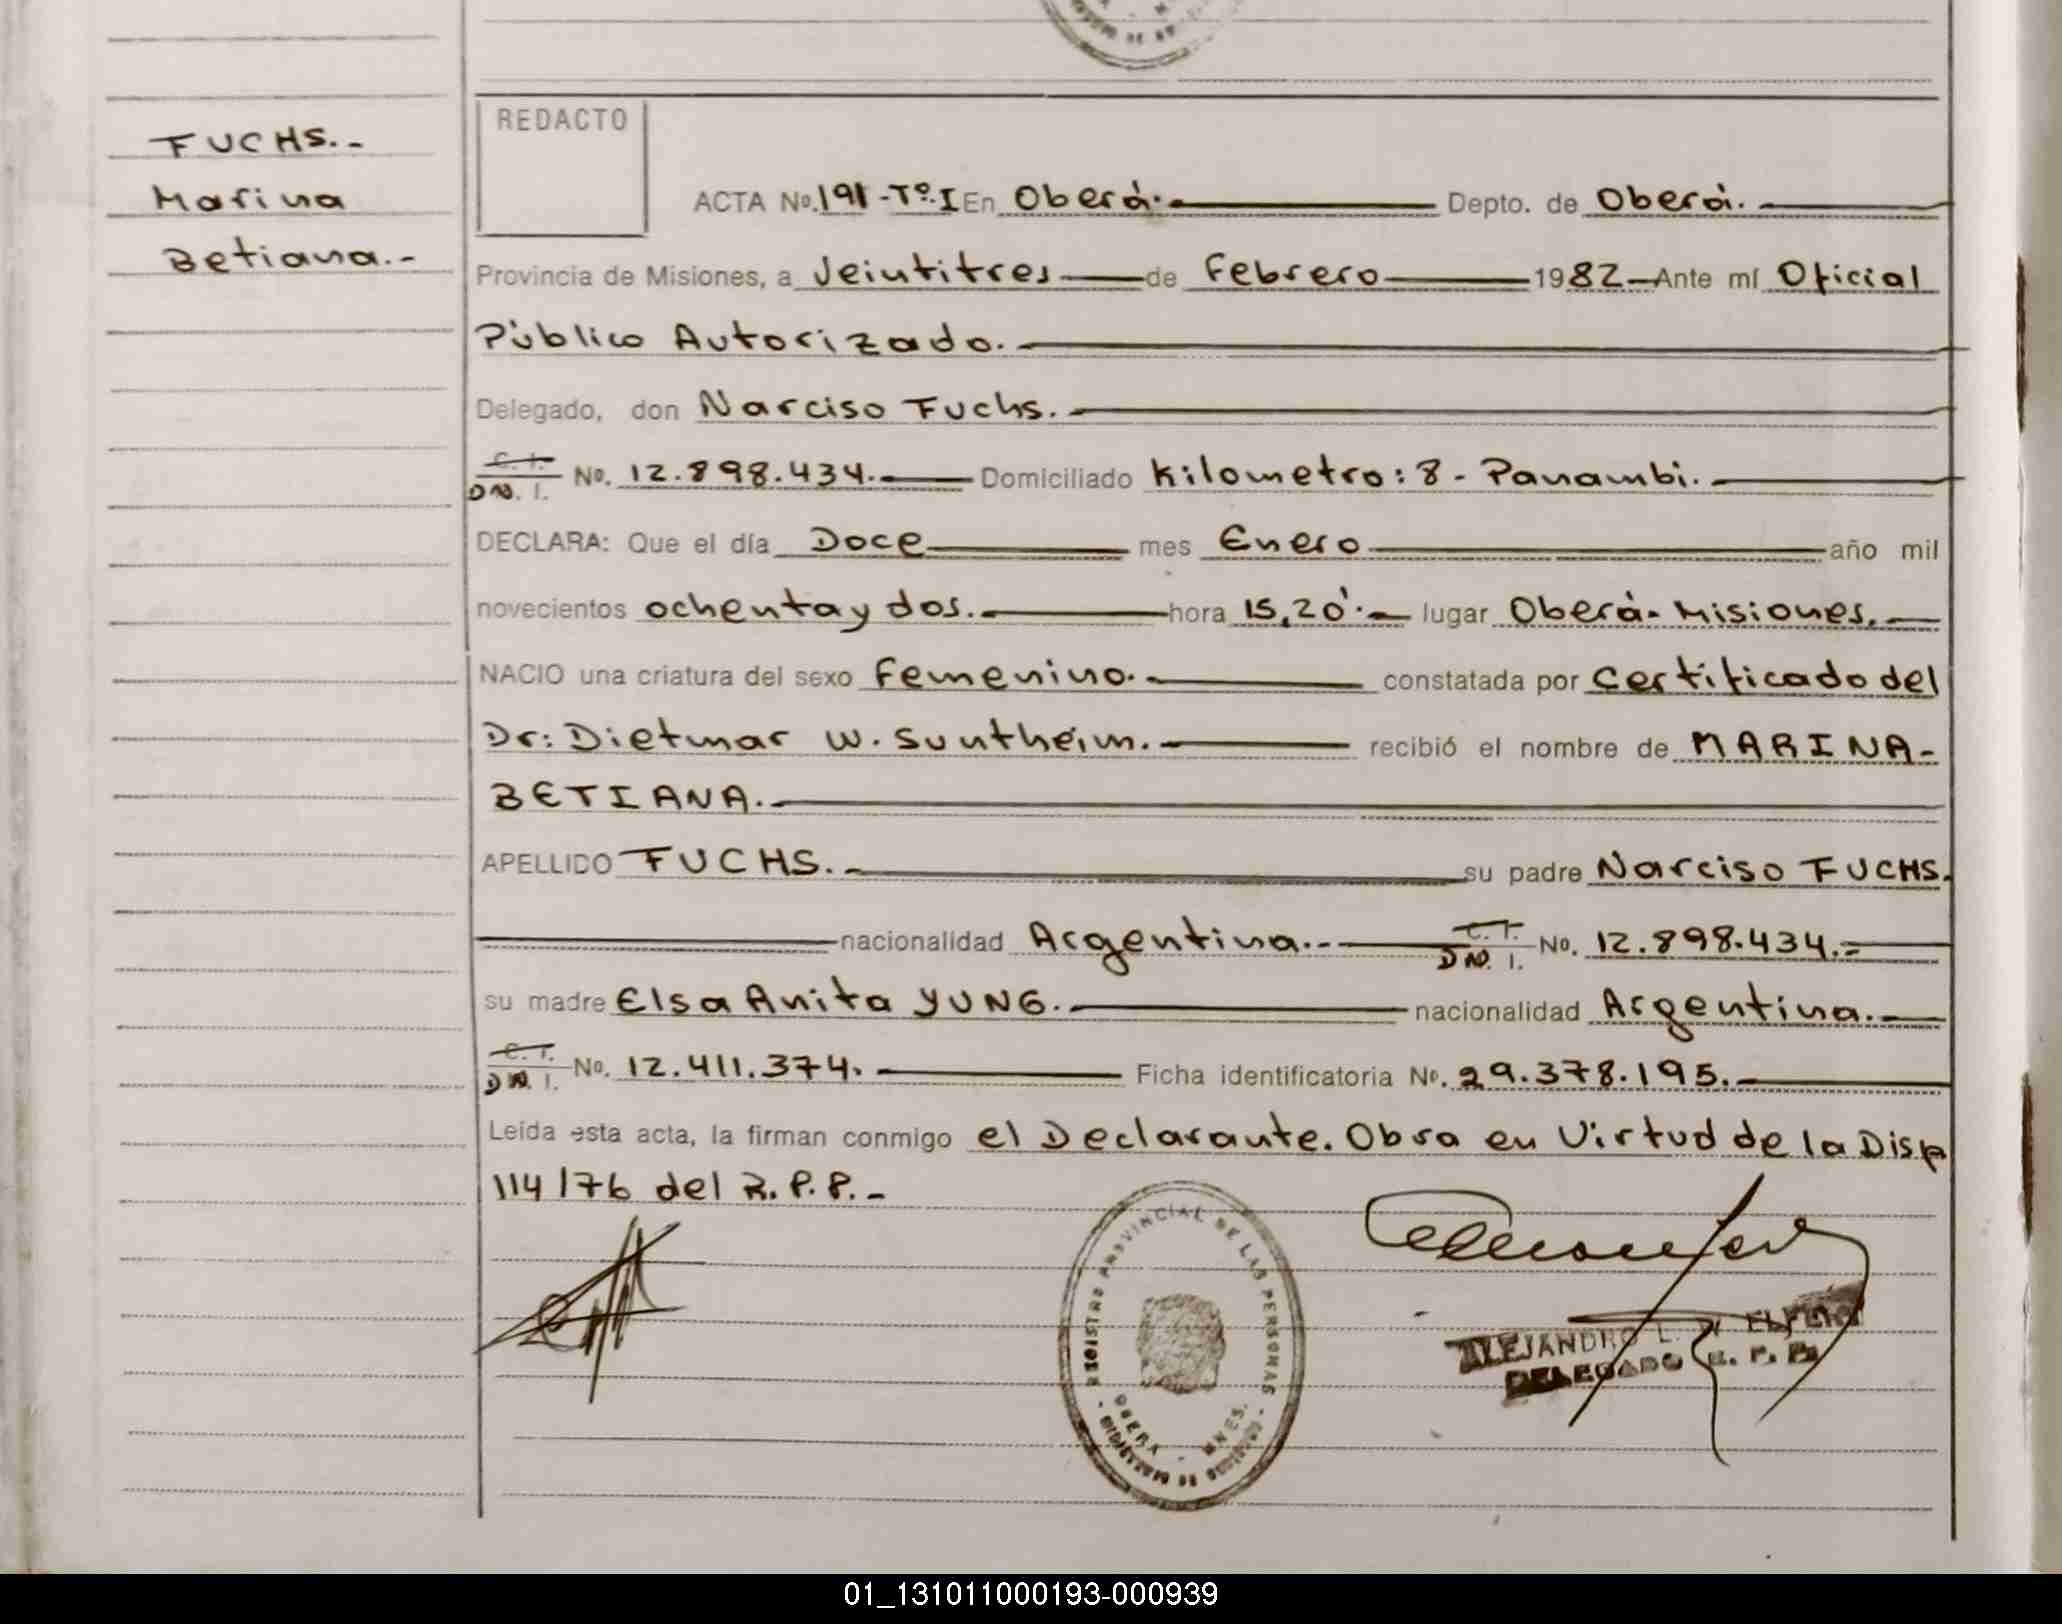 FUCHS.-
Marina
Betiana.-
REDACTO
ACTA No. 191-Tº.I En Oberá. Depto. de Oberá.
Provincia de Misiones, a Veintitres de Febrero 1982 Ante mí Oficial
Público Autorizado.
Delegado, don Narciso Fuchs.
C. I.
DN. I. No. 12.898.434. Domiciliado Kilometro: 8 - Panambi.
DECLARA: Que el día Doce mes Enero año mil
novecientos ochenta y dos. hora 15,20'. lugar Oberá- Misiones.
NACIO una criatura del sexo Femenino. constatada por Certificado del
Dr: Dietmar W. Suntheim. recibió el nombre de MARINA-
BETIANA.
APELLIDO FUCHS. su padre Narciso FUCHS.
nacionalidad Argentina.- C. I. DN. I. No. 12.898.434.-
su madre Elsa Anita YUNG. nacionalidad Argentina.
C. I. DN. I. No. 12.411.374. Ficha identificatoria No. 29.378.195.
Leída esta acta, la firman conmigo el Declarante. Obra en Virtud de la Disp
114/76 del R.P.P.-
REGISTRO PROVINCIAL DE LAS PERSONAS
OBERA - MNES.
ALEJANDRO L.
DELEGADO R. P. P.
01_131011000193-000939